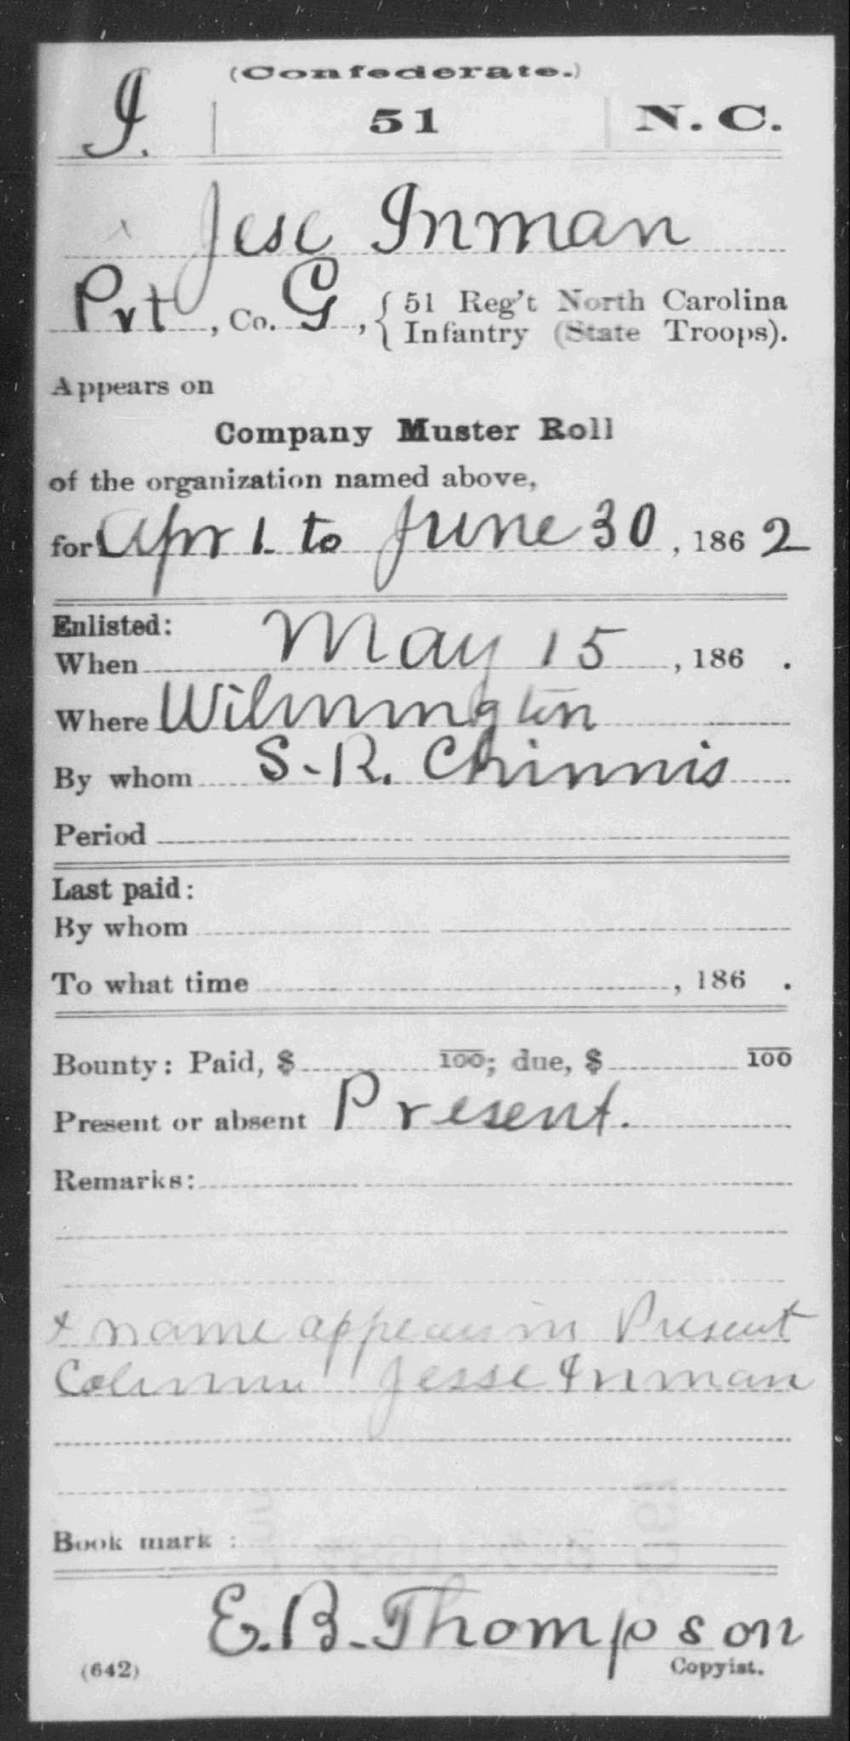 (Confederate.)
I. | 51 | N. C.
x Jese Inman
Pvt, Co. G, { 51 Reg't North Carolina
Infantry (State Troops).
Appears on
Company Muster Roll
of the organization named above,
for Apr 1 to June 30, 1862
Enlisted:
When May 15, 186 .
Where Wilmington
By whom S. R. Chinnis
Period
Last paid:
By whom
To what time , 186 .
Bounty: Paid, $ 100; due, $ 100
Present or absent Present.
Remarks:
x name appears in Present
Column Jesse Inman
Book mark :
E. B. Thompson
(642) Copyist.